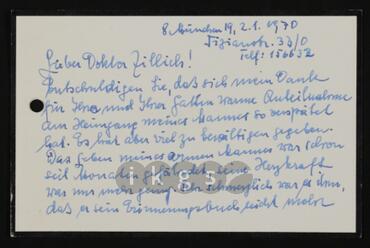 8 München 19, 2.1.1970
Tizianstr. 33/0
Telf: 156632
Lieber Doktor Zillich!
Entschuldigen Sie, daß sich mein Dank
für Ihre und Ihrer Gattin warme Anteilnahme
am Heimgang meines Mannes so verspätet
hat. Es hat aber viel zu bewältigen gegeben.
Das Leben meines armen Mannes war schon
seit Monaten seine Herzkraft
war nur mehr war es ihm,
daß er sein Erinnerungsbuch nicht mehr
ikgs